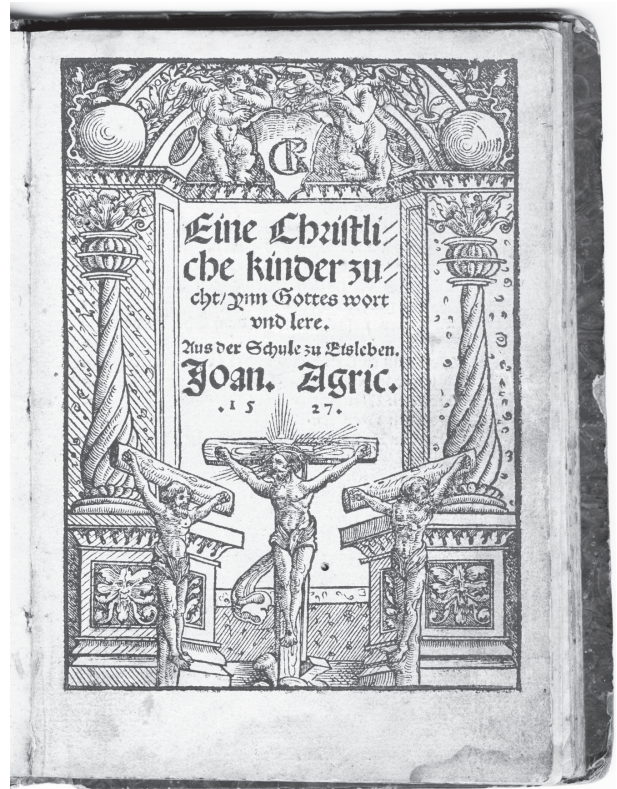 GR
Eine Christli⸗
che kinder zu⸗
cht/ ynn Gottes wort
vnd lere.
Aus der Schule zu Eisleben.
Joan. Agric.
.15 27.